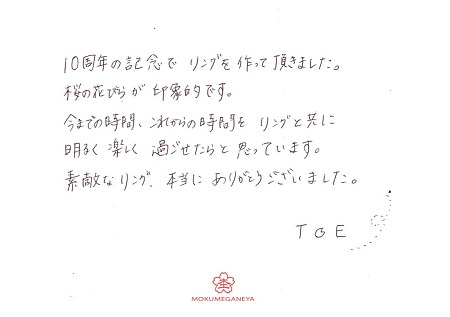 10周年の記念で リングを作って頂きました。
桜の花びらが 印象的です。
今までの時間、これからの時間を リングと共に
明るく 楽しく 過ごせたらと 思っています。
素敵なリング、本当に ありがとうございました。
T&E
MOKUMEGANEYA